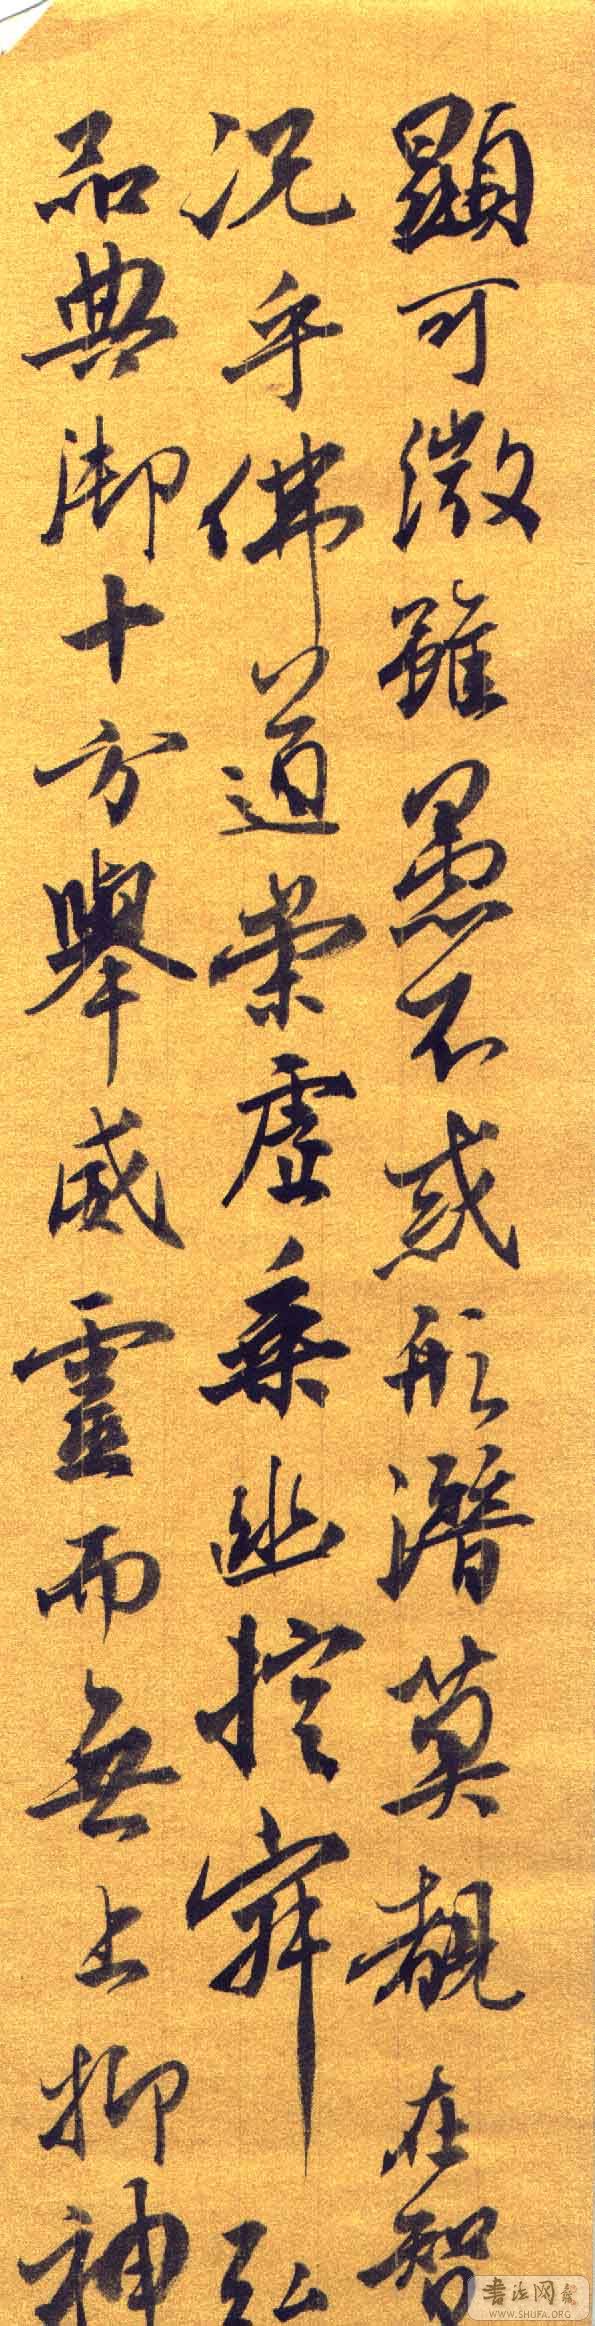 顯可徵雖愚不惑形潛莫覩在智
況乎佛道崇虛乘幽控寂弘
品典御十方舉威靈而無上抑神
書法网
WWW.SHUFA.ORG